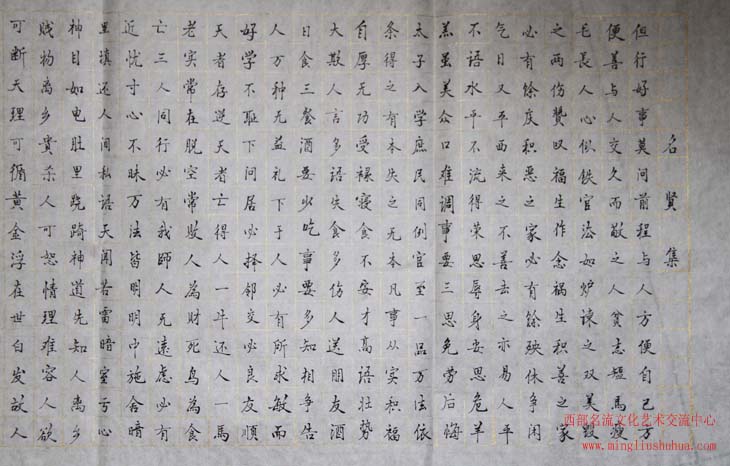 名賢集
但行好事莫问前程与人方便自己方
便善与人交久而敬之人贫志短馬瘦
毛長人心似铁官法如炉谏之双美毁
之两伤赞叹福生作念祸生积善之家
必有餘庆积恶之家必有餘殃休争闲
气日又平西来之不善去之亦易人平
不语水平不流得荣思辱身安思危羊
羔虽美众口难调事要三思免劳后悔
太子入学庶民同例官至一品万法依
条得之有本失之无本凡事从实积福
自厚无功受禄寝食不安才高语壮势
大欺人言多语失食多伤人送朋友酒
日食三餐酒要少吃事要多知相争告
人万种无益礼下于人必有所求敏而
好学不耻下问居必择邻交必良友順
天者存逆天者亡得人一斗还人一馬
老实常在脱空常败人為财死鸟為食
亡三人同行必有我师人无遠虑必有
近忧寸心不昧万法皆明明中施舍暗
里填还人间私语天闻若雷暗室亏心
神目如电肚里跷蹊神道先知人离乡
贱物离乡貴杀人可恕情理难容人欲
可断天理可循黄金浮在世白发故人
西部名流文化艺术交流中心
www.mingliushuhua.com